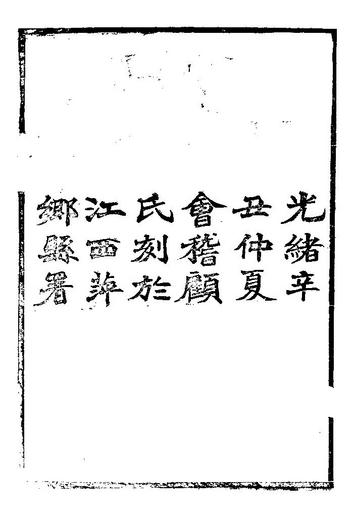 光緒辛
丑仲夏
會稽顧
氏刻於
江西萍
鄉縣署